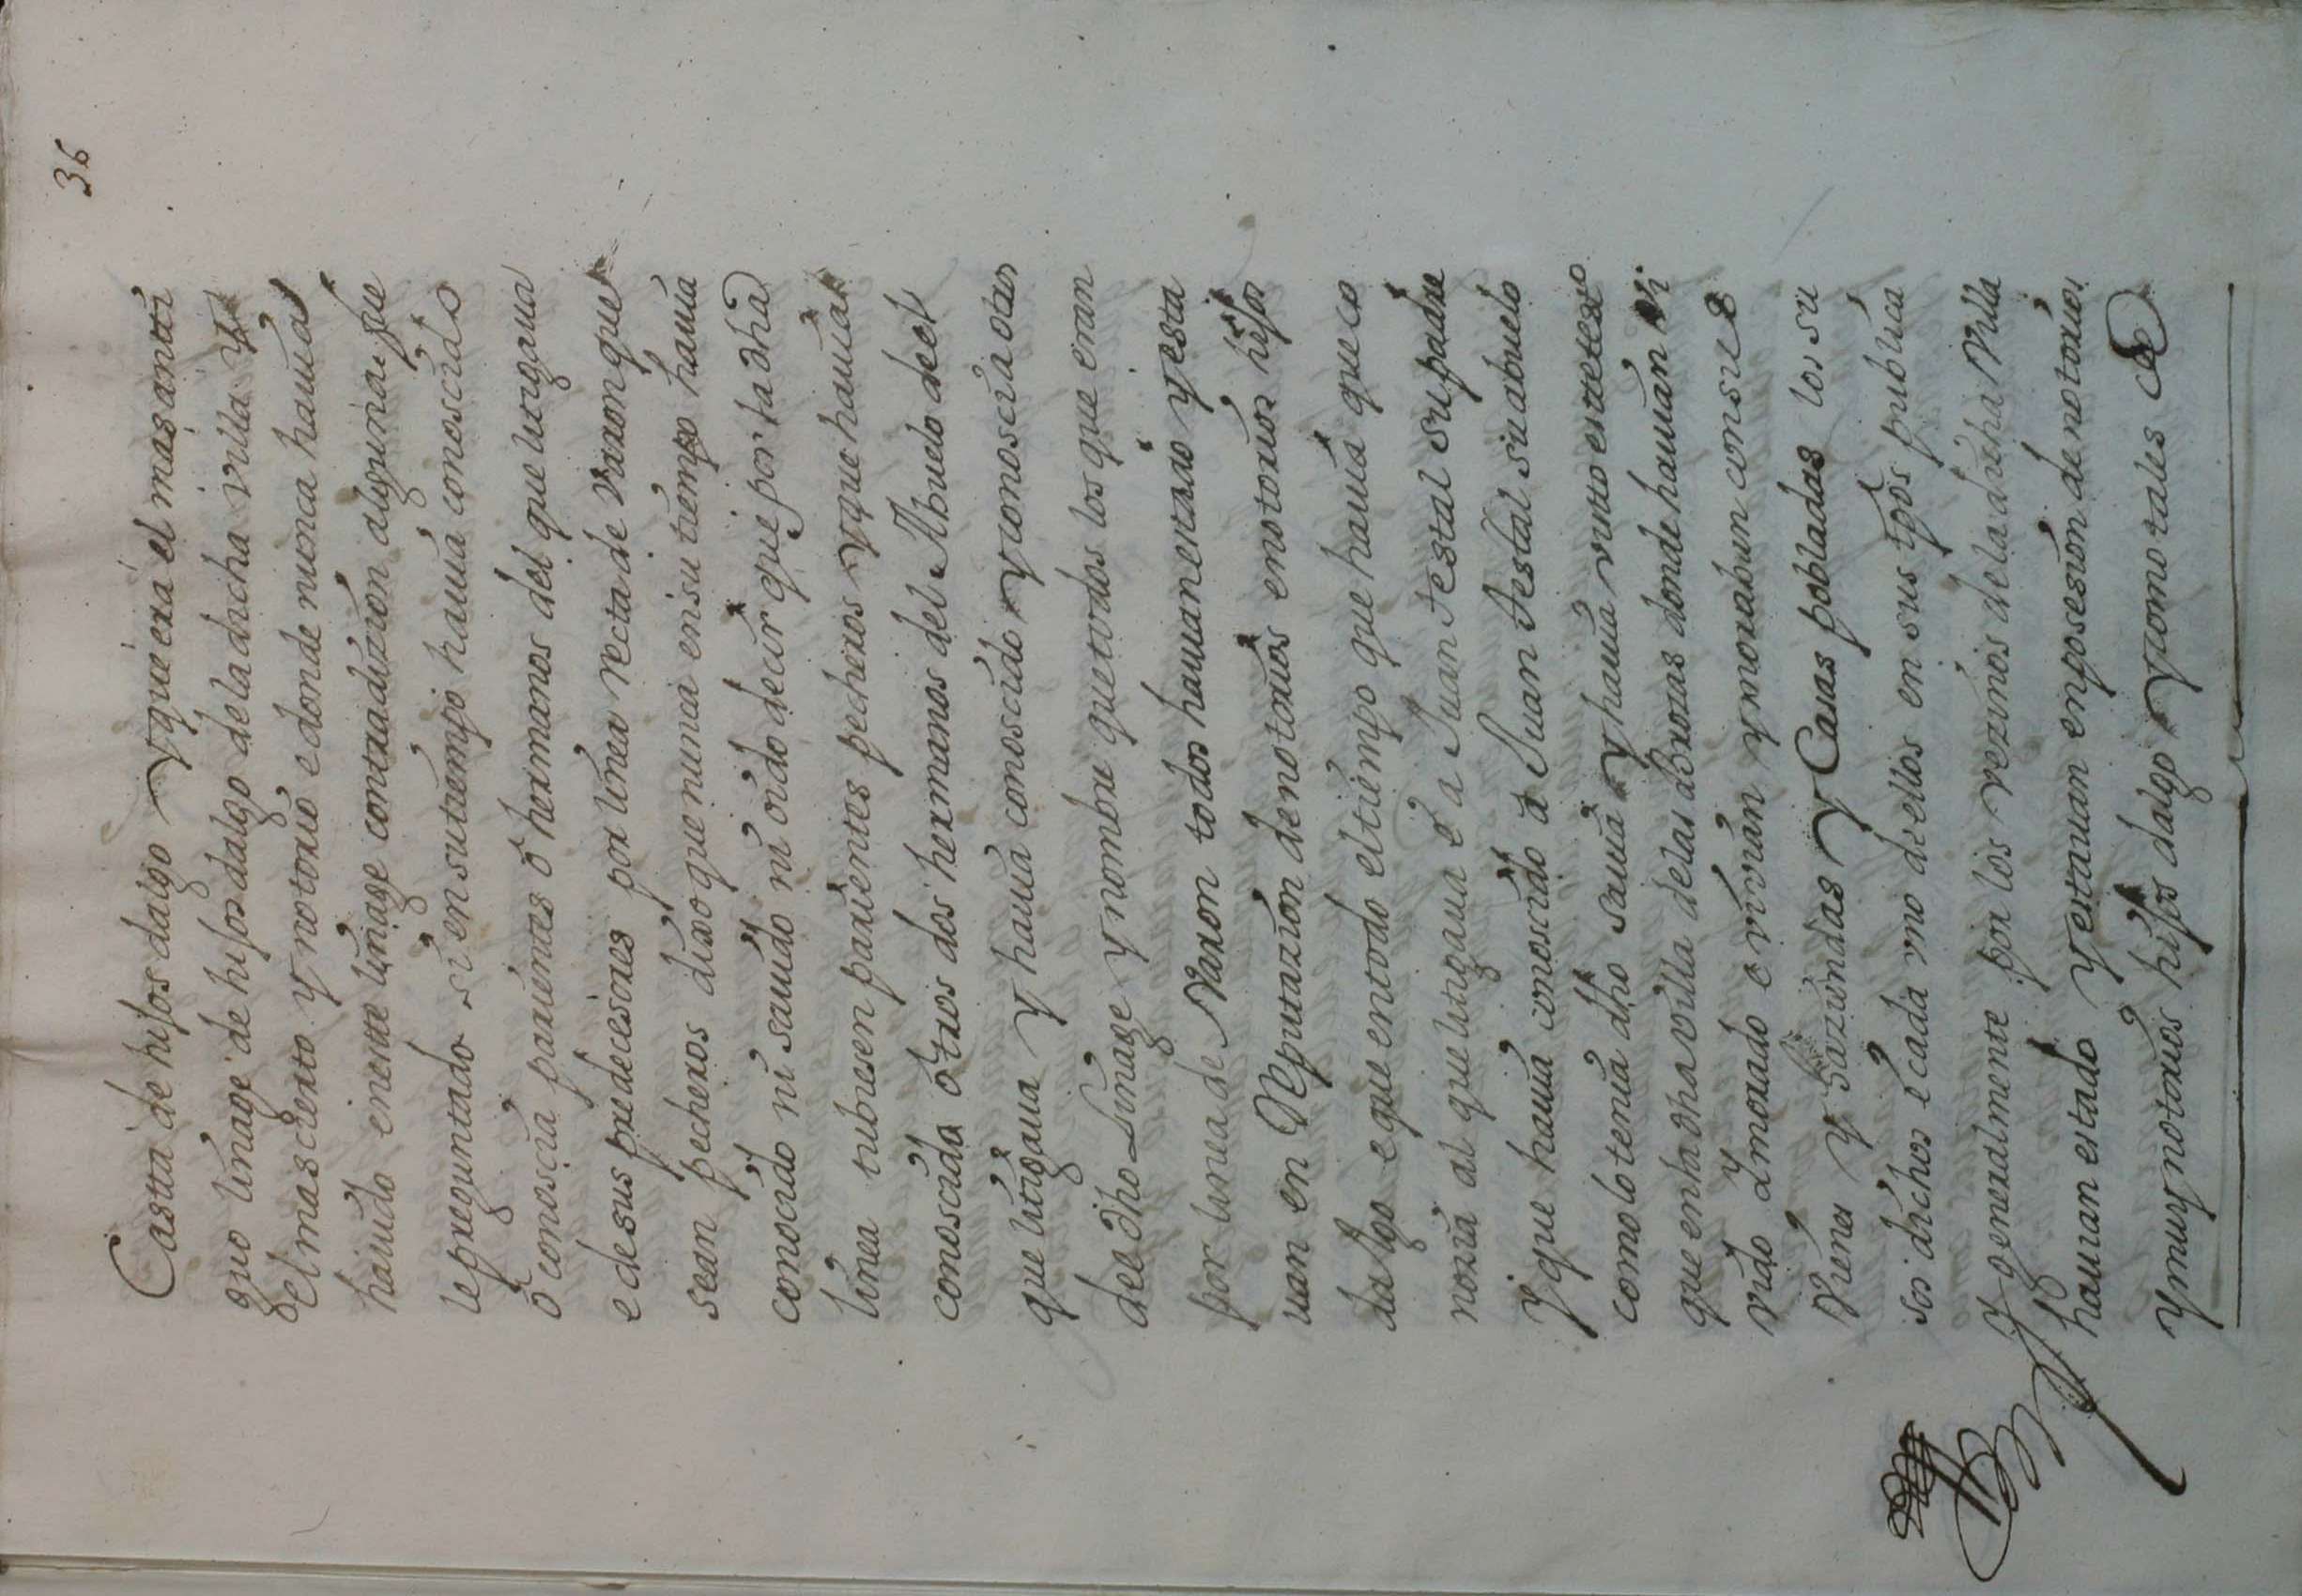 36
Casta de hijos dalgo y que era el mas anti
guo linage de hijos dalgo de la dicha villa y
el mas cierto y notorio e donde nunca havia
havido en este linage contradizion alguna fue
le preguntado si en su tiempo havia conoscido
o conoscia parientes o hermanos del que litigava
e de sus predecesores por linea recta de varon que
sean pecheros dixo que nunca en su tiempo havia
conocido ni savido ni oido decir que por la dha
linea tubiesen parientes pecheros y que havia
conoscido otros dos hermanos del Abuelo de el
que litigava y havia conoscido y conoscia otros
del dho Linage y nombre que todos los que eran
por linea de Varon todos havian estado y esta
van en Reputazion de notorios e notorios hijos
dalgo e que en todo el tiempo que havia que co
nozia al que litigava e a Juan Testal su padre
y que havia conoscido a Juan Testal su abuelo
como lo tenia dho savia y havia visto este testigo
que en la dha villa de las Brozas donde havian vi
vido y morado e vivian y moraban con sus
Vienes y hazindas y Casas pobladas los su
sos dichos e cada vno de ellos en sus tpos publica
y generalmente por los vezinos de la dicha Villa
havian estado y estavan en posesion de notorios
y muy notorios hijos dalgo y como tales